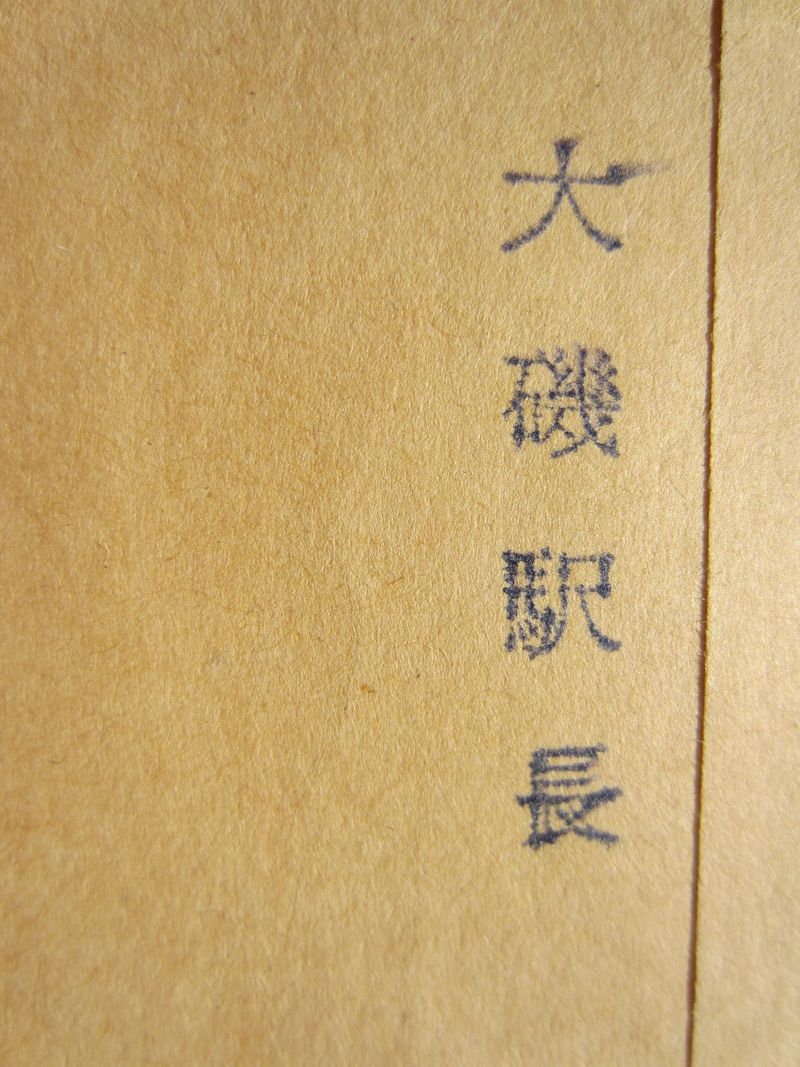 大磯駅長